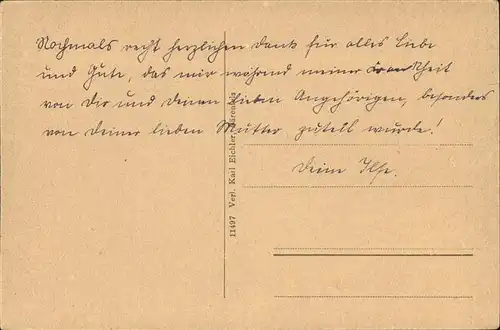 Nochmals recht herzlichen Dank für alles Liebe
und Gute, das mir während meiner Krankheit
von Dir und Deinen lieben Angehörigen, besonders
von Deiner lieben Mutter zuteil wurde!
Deine Ilse.
11497 Verl. Karl Eichler, Bärenfels